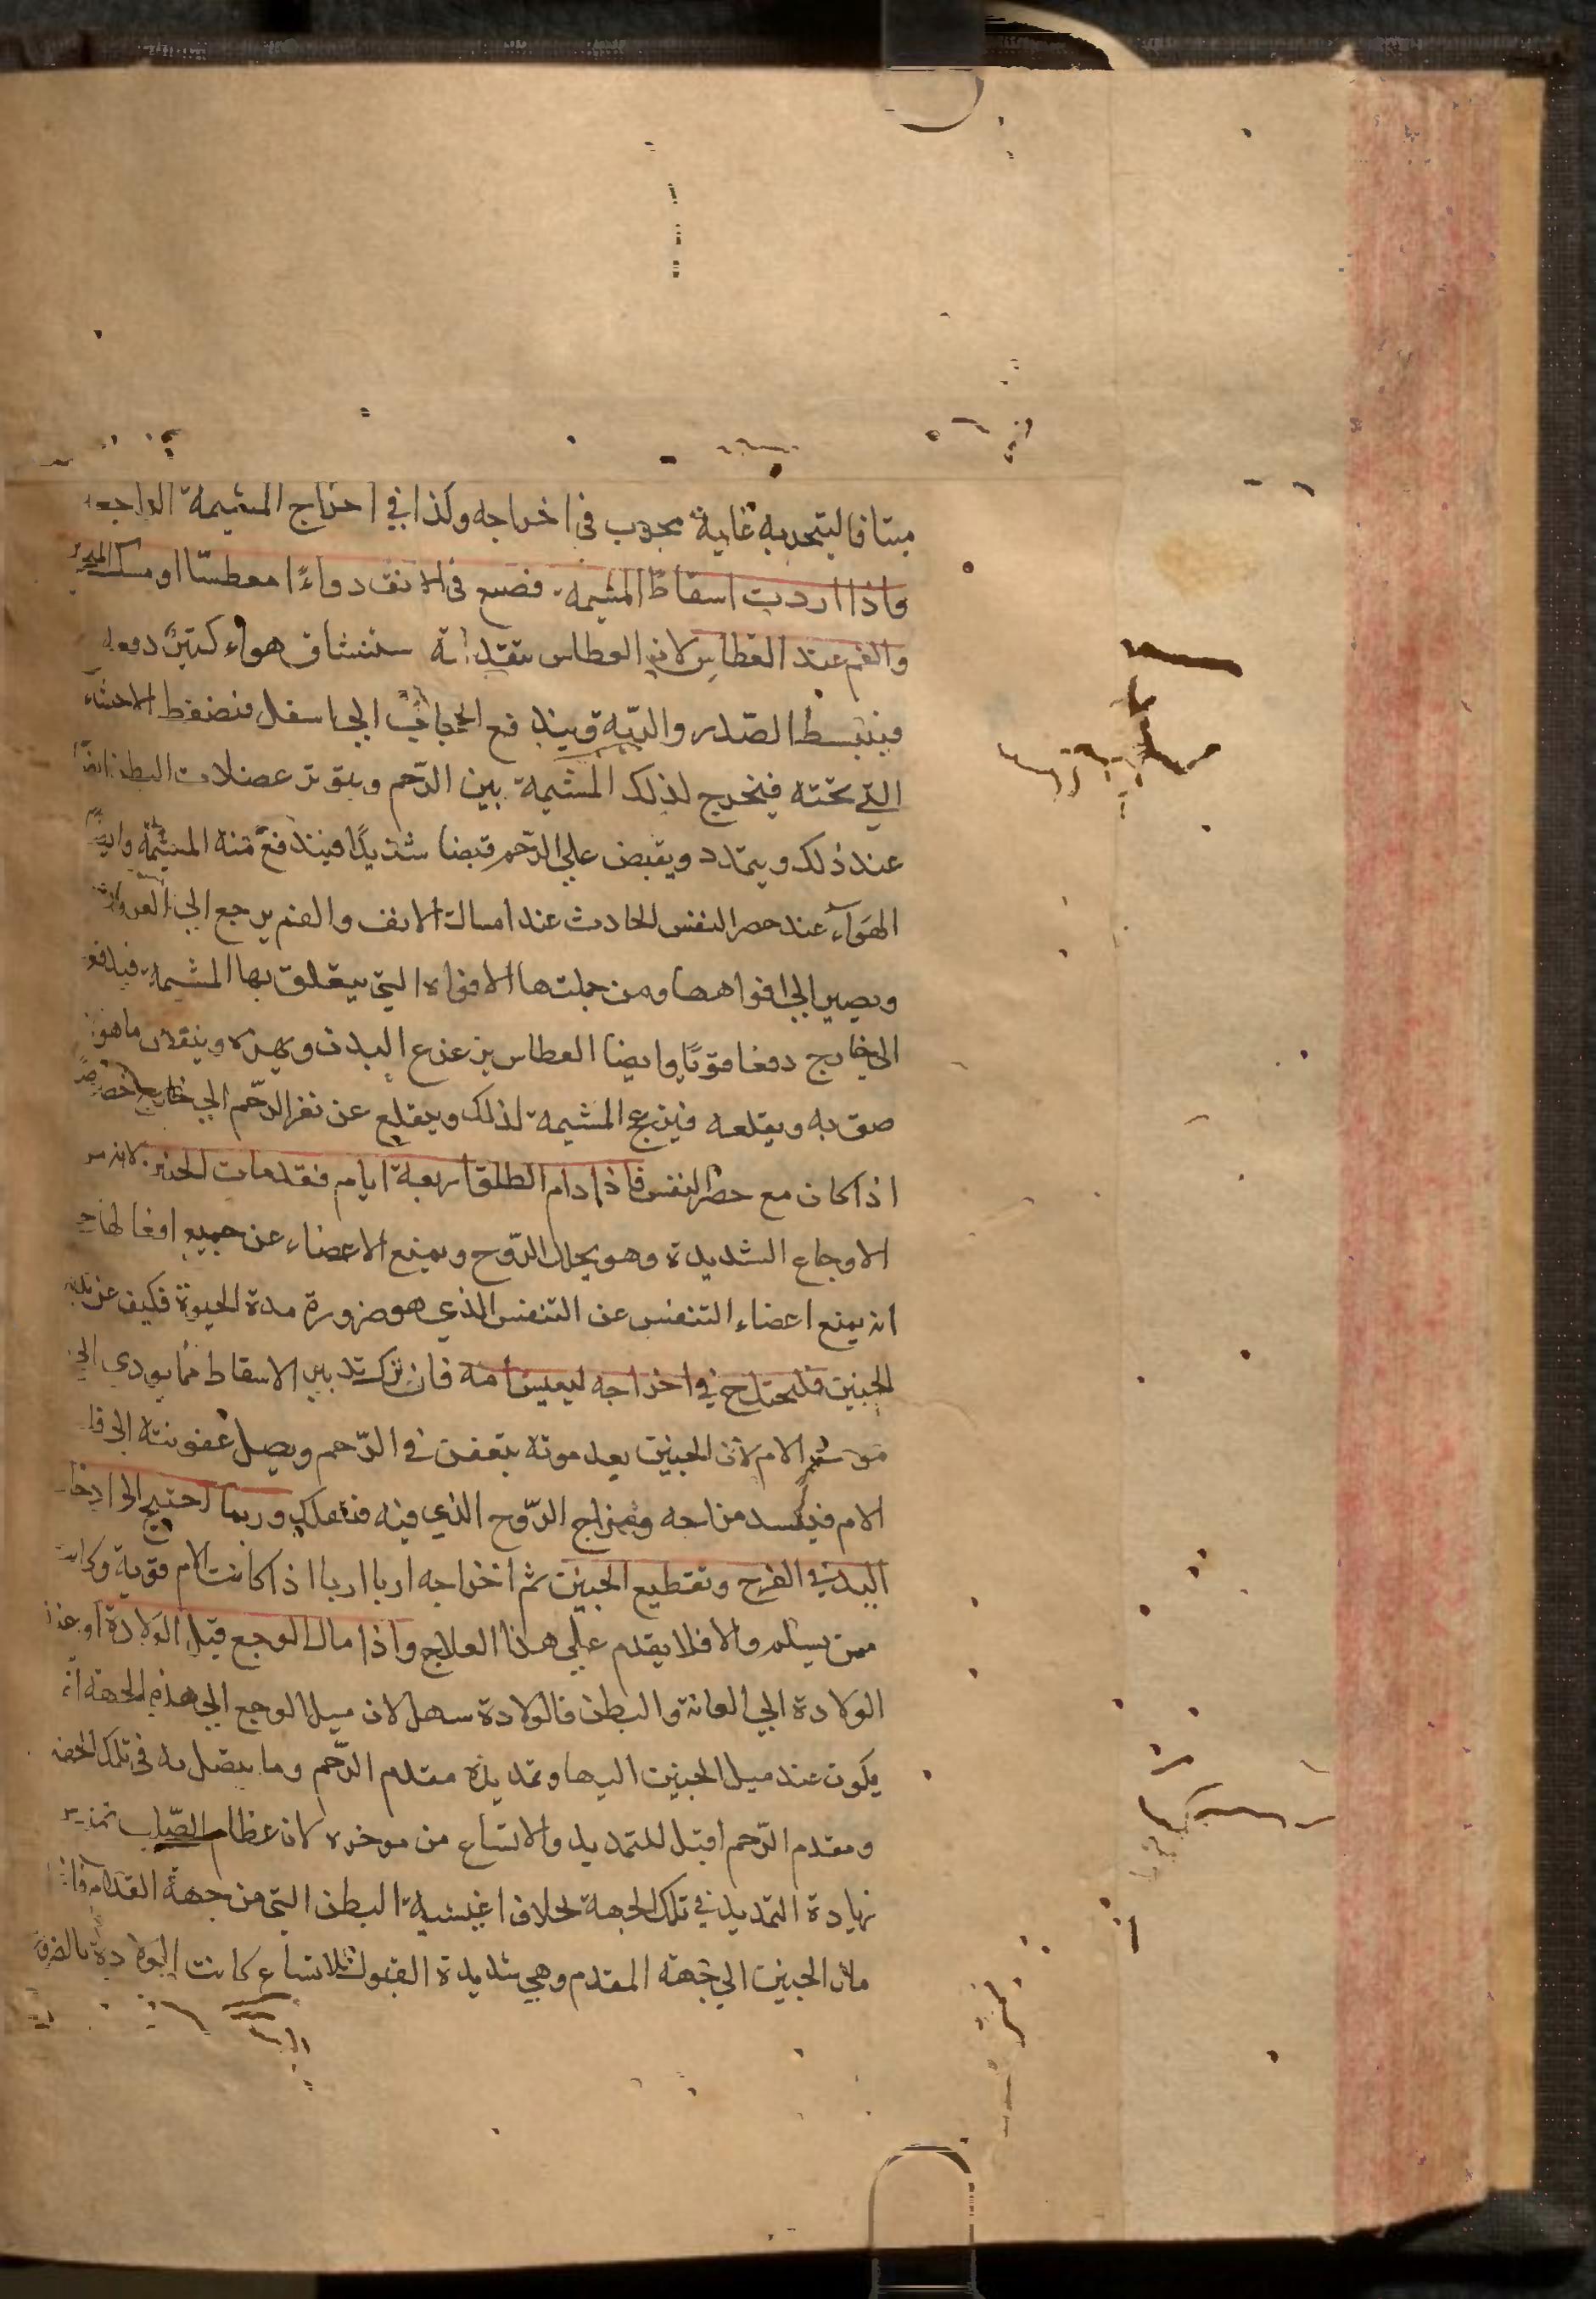 ميتا فالتبخر به غاية مجرب في اخراجه وكذا في اخراج المشيمة الواجبة
واذا اردت اسقاط المشيمة فضع في الانف دواءً معطسّا او مسك المنخرين
والفم عند العطاس لان العطاس يتقدمه استنشاق هواء كثير دفعة
فينبسط الصّدر والريّة ويندفع الحجاب الي اسفل فتضغط الاحشاء
التي تحته فيخرج لذلك المشيمة بين الرّحم ويتوتر عضلات البطن ايضًا
عند ذلك ويتمدد ويقبض علي الرّحم قبضا شديدًا فيندفع منه المشيمة وايضًا
الهوآء عند حصر النفس الحادث عند امساك الانف والفم يرجع الي العروق
ويصير الي افواهها ومن جملتها الافواه التي يتعلق بها المشيمة فيدفع
الي خارج دفعا قويّا وايضا العطاس يزعزع البدن ويهزه وينفض ما هو
صق به ويقلعه فينزعج المشيمة لذلك ويقلع عن نقر الرّحم الي خارج خصوصًا
اذا كان مع حصر النفس فاذا دام الطلق اربعة ايام فقد مات الجنين لانه من
الاوجاع الشديدة وهو يحلل الرّوح ويمنع الاعضاء عن جميع افعالها
انه يمنع اعضاء التنفس عن التنفس الذي هو ضرورة مدة الحيوة فكيف عن
الجنين فليحتل في اخراجه ليعيش امه فان ترك تدبير الاسقاط مما يودي الي
موت الام لان الجنين بعد موته يتعفن في الرّحم ويصل عفونته الي
الام فيفسد مزاجه ومزاج الرّوح الذي فيه فتهلك وربما احتيج الي ادخال
اليد في الفرج وتقطيع الجنين ثم اخراجه اربا اربا اذا كانت الام قوية وكانت
ممن يسلم والا فلا يقدم علي هذا العلاج واذا مال الوجع قبل الولادة او عند
الولادة الي العانة والبطن فالولادة سهل لان ميل الوجع الي هذه الجهة انما
يكون عند ميل الجنين اليها وتمديده مقدم الرّحم وما يتصل به في تلك الجهة
ومقدم الرّحم اقبل للتمديد والاتساع من موخره لان عظام الصّلب تمنع
زيادة التمديد في تلك الجهة بخلاف اغشية البطن التي من جهة القدام فاذا
مال الجنين الي جهة المقدم وهي شديدة القبول للاتساع كانت الولادة بالضرورة